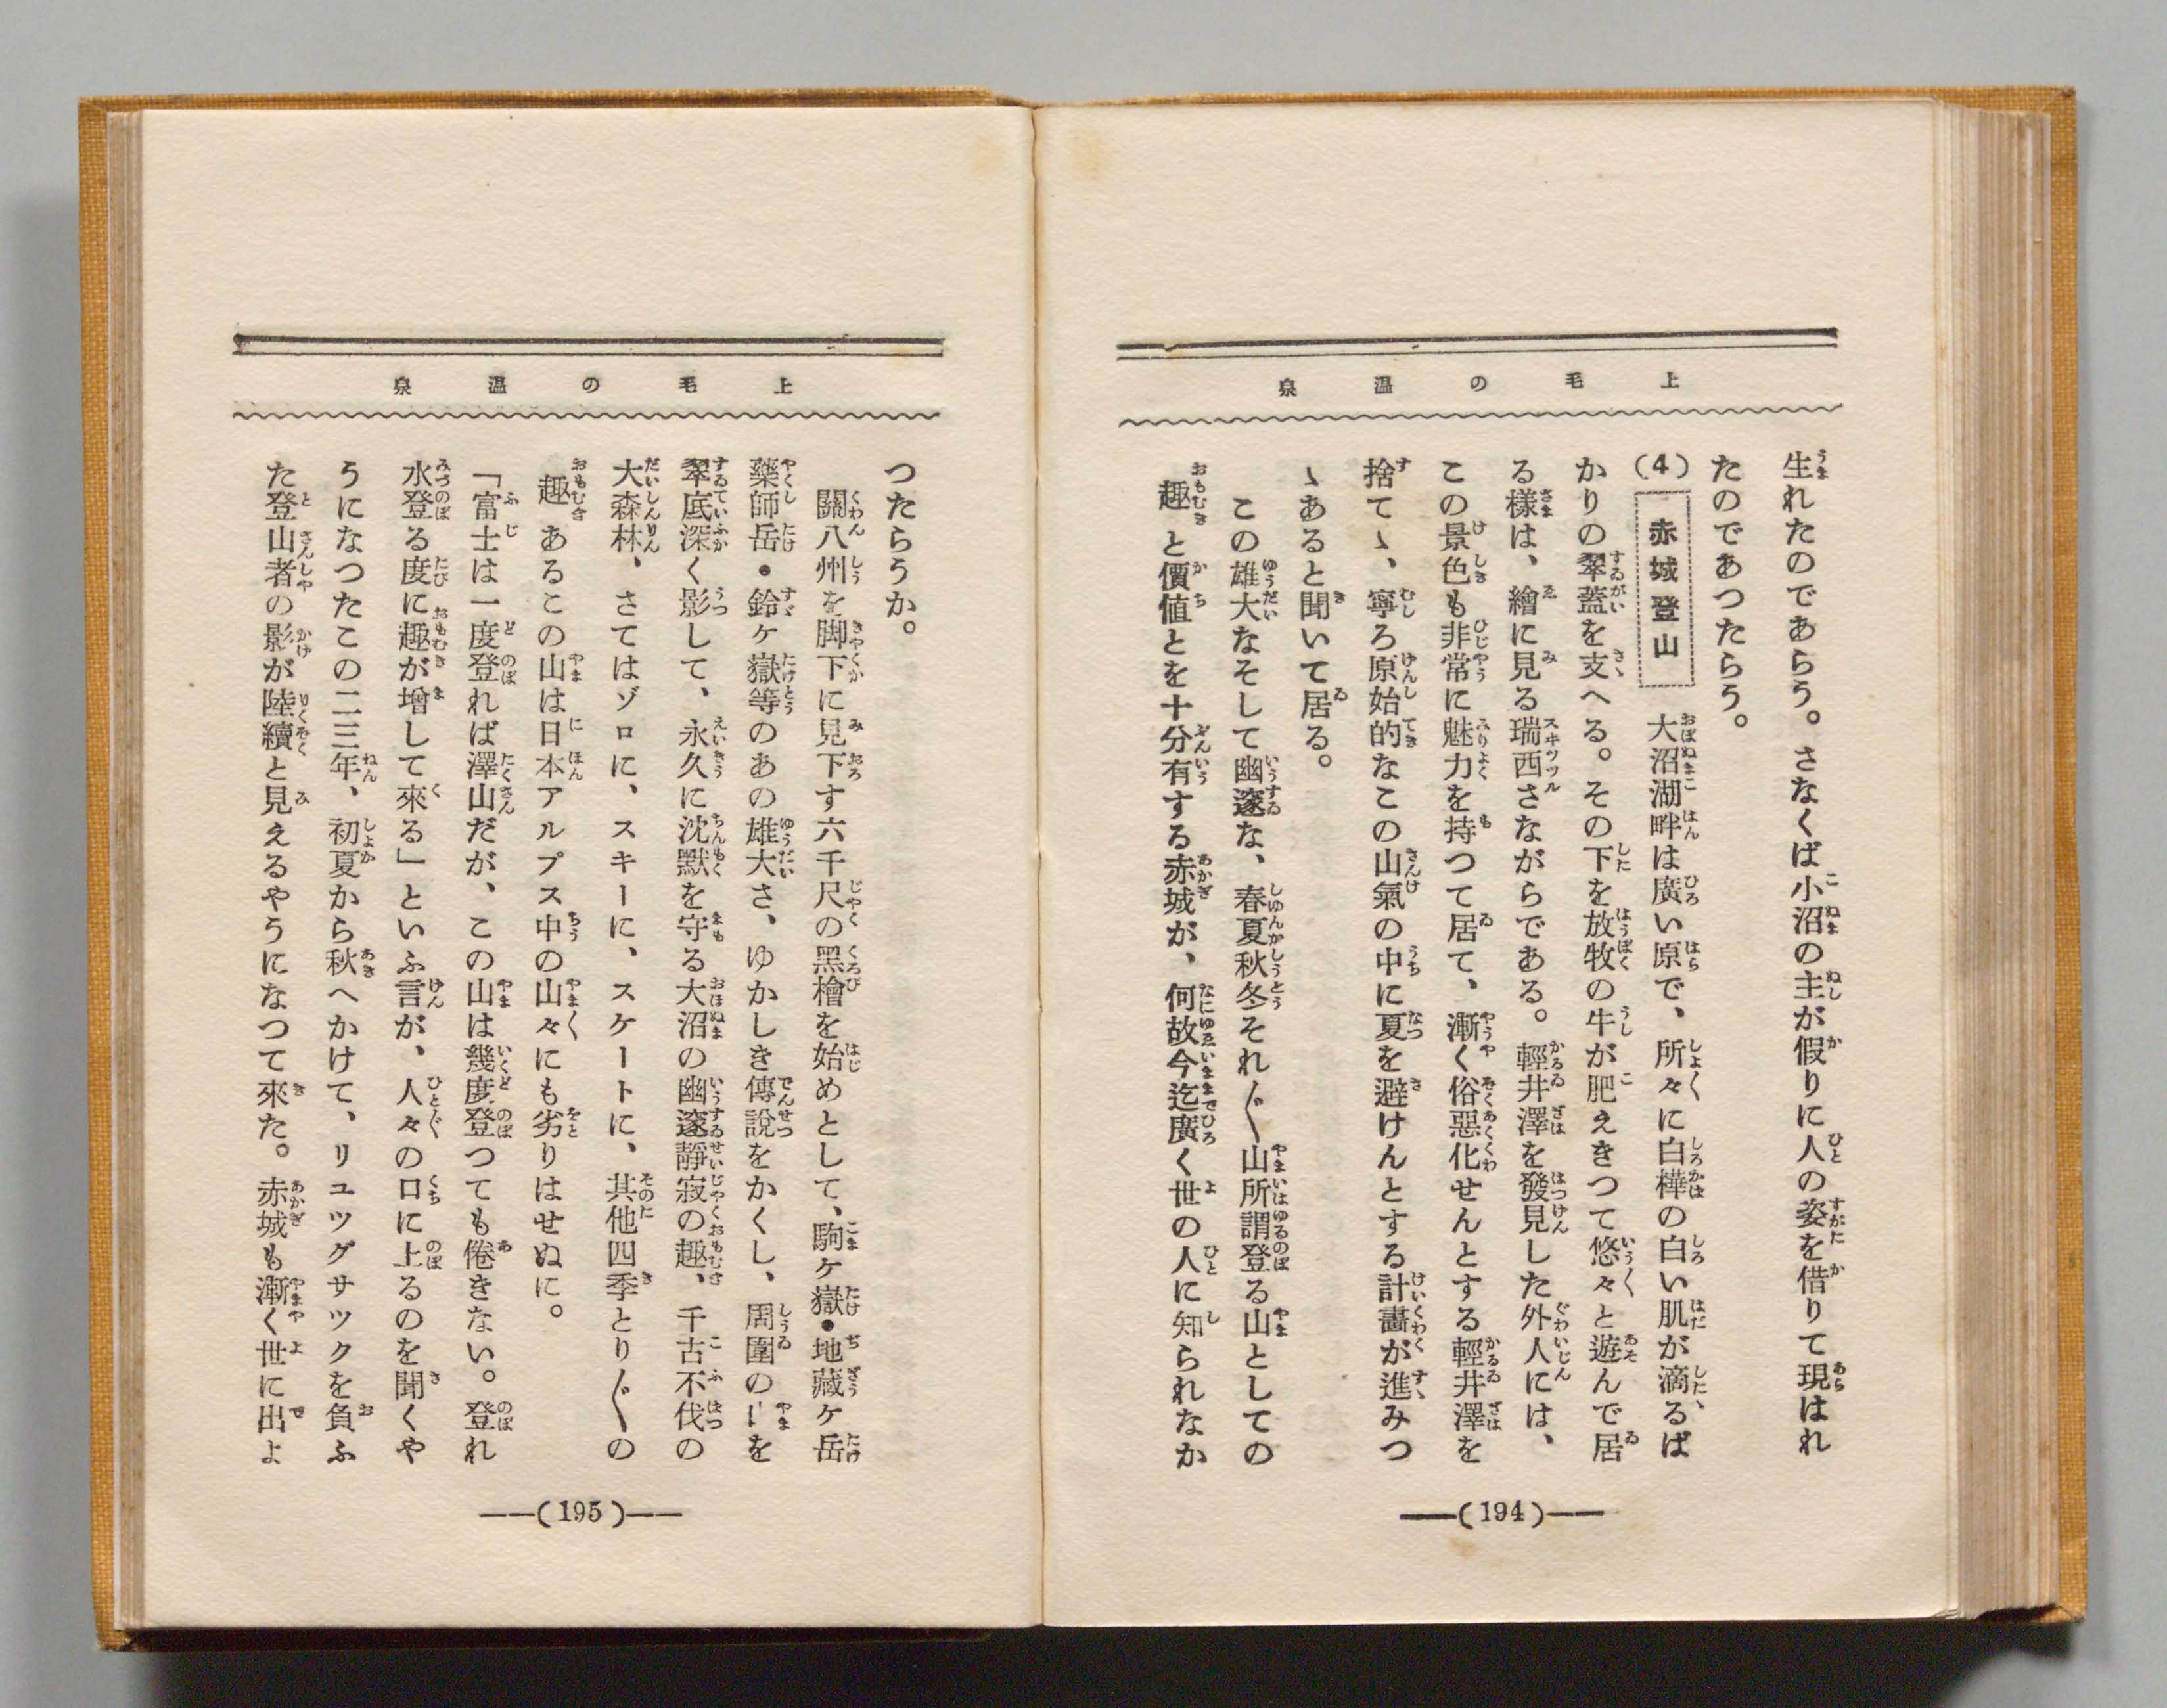 上毛の温泉
生れたのであらう。さなくば小沼の主が假りに人の姿を借りて現はれ
たのであつたらう。
(4) 赤城登山 大沼湖畔は廣い原で、所々に白樺の白い肌が滴るば
かりの翠蓋を支へる。その下を放牧の牛が肥えきつて悠々と遊んで居
る樣は、繪に見る瑞西さながらである。輕井澤を發見した外人には、
この景色も非常に魅力を持つて居て、漸く俗惡化せんとする輕井澤を
捨てゝ、寧ろ原始的なこの山氣の中に夏を避けんとする計畫が進みつ
ゝあると聞いて居る。
この雄大なそして幽邃な、春夏秋冬それ〴〵山所謂登る山としての
趣と價値とを十分有する赤城が、何故今迄廣く世の人に知られなか
(194)
上毛の温泉
つたらうか。
關八州を脚下に見下す六千尺の黑檜を始めとして、駒ヶ嶽・地藏ヶ岳
藥師岳・鈴ヶ嶽等のあの雄大さ、ゆかしき傳說をかくし、周圍のを
翠底深く影して、永久に沈默を守る大沼の幽邃靜寂の趣、千古不伐の
大森林、さてはゾロに、スキーに、スケートに、其他四季とり〴〵の
趣あるこの山は日本アルプス中の山々にも劣りはせぬに。
「富士は一度登れば澤山だが、この山は幾度登つても倦きない。登れ
水登る度に趣が增して來る」といふ言が、人々の口に上るのを聞くや
うになつたこの二三年、初夏から秋へかけて、リユツグサツクを負ふ
た登山者の影が陸續と見えるやうになつて來た。赤城も漸く世に出よ
(195)